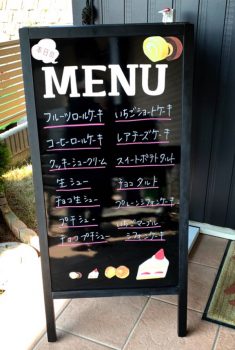 本日の
MENU
フルーツロールケーキ
コーヒーロールケーキ
クッキーシュークリーム
生シュー
チョコ生シュー
プチシュー
チョコプチシュー
いちごショートケーキ
レアチーズケーキ
スイートポテトタルト
チョコタルト
プレーンシフォンケーキ
いちごマーブル
シフォンケーキ